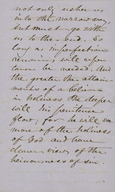 not only usher us
into the narrow way,
but must go with
us to the end. So
long as imperfection
remains, will repen-
tance be needed. And
the greater the attain-
ments of a believer
in holiness the deeper
will his penitence
flow; for he will see
more of the holiness
of God and have
clearer views of the
heinousness of sin